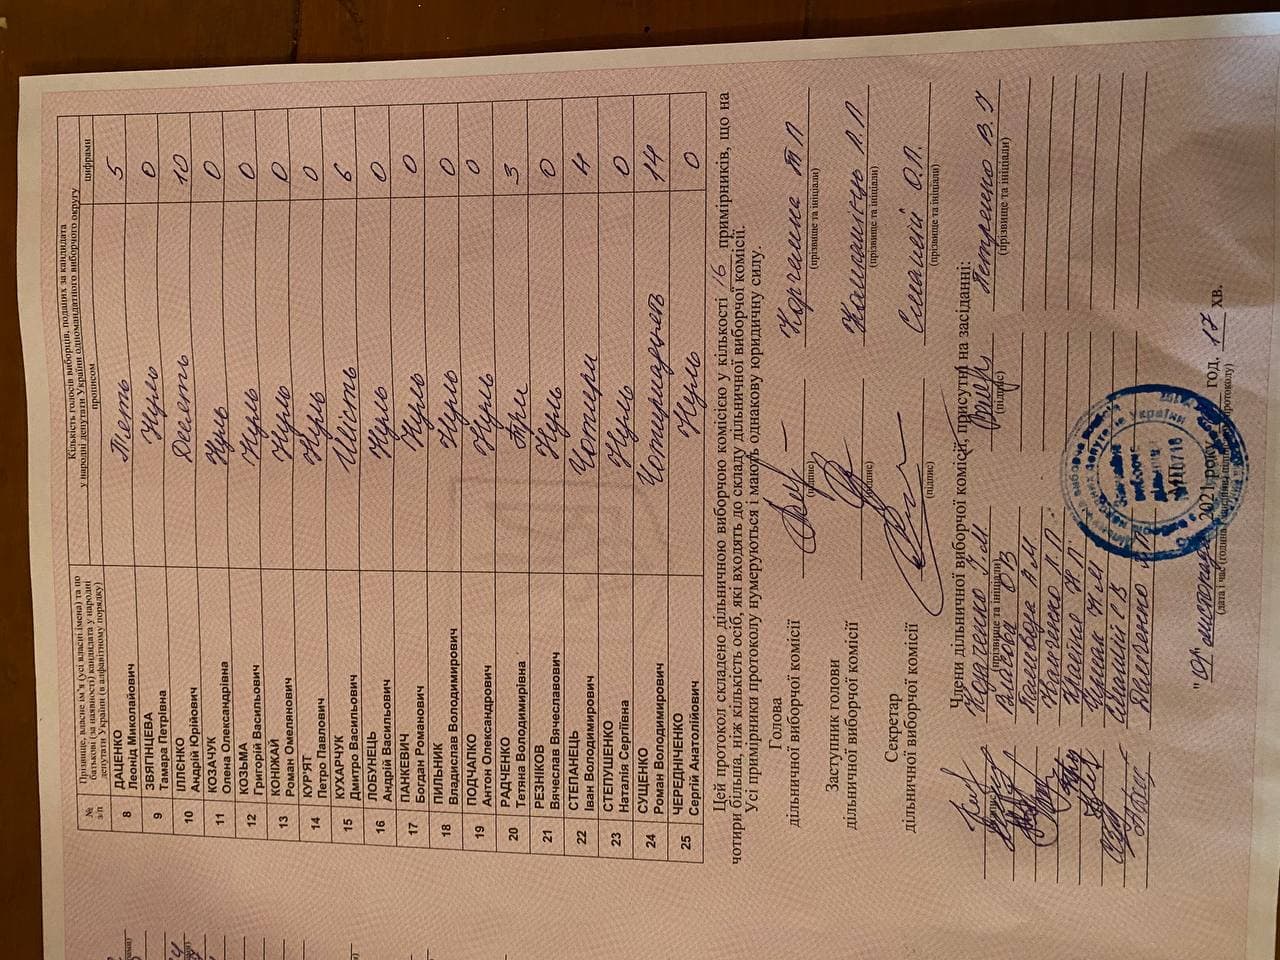 № з/п
Прізвище, власне ім’я (усі власні імена) та по
батькові (за наявності) кандидата у народні
депутати України (в алфавітному порядку)
Кількість голосів виборців, поданих за кандидата
у народні депутати України одномандатного виборчого округу
прописом
цифрами
8 ДАЦЕНКО П'ять 5
Леонід Миколайович
9 ЗВЯГІНЦЕВА Нуль 0
Тамара Петрівна
10 ІЛЛЄНКО Десять 10
Андрій Юрійович
11 КОЗАЧУК Нуль 0
Олена Олександрівна
12 КОЗЬМА Нуль 0
Григорій Васильович
13 КОНІЖАЙ Нуль 0
Роман Омелянович
14 КУР'ЯТ Нуль 0
Петро Павлович
15 КУХАРЧУК Шість 6
Дмитро Васильович
16 ЛОБУНЕЦЬ Нуль 0
Андрій Васильович
17 ПАНКЕВИЧ Нуль 0
Богдан Романович
18 ПИЛЬНИК Нуль 0
Владислав Володимирович
19 ПОДЧАПКО Нуль 0
Антон Олександрович
20 РАДЧЕНКО Три 3
Тетяна Володимирівна
21 РЕЗНІКОВ Нуль 0
Вячеслав Вячеславович
22 СТЕПАНЕЦЬ Чотири 4
Іван Володимирович
23 СТЕПУШЕНКО Нуль 0
Наталія Сергіївна
24 СУЩЕНКО Чотирнадцять 14
Роман Володимирович
25 ЧЕРЕДНІЧЕНКО Нуль 0
Сергій Анатолійович
Цей протокол складено дільничною виборчою комісією у кількості 16 примірників, що на
чотири більша, ніж кількість осіб, які входять до складу дільничної виборчої комісії.
Усі примірники протоколу нумеруються і мають однакову юридичну силу.
Голова
дільничної виборчої комісії
(підпис) (прізвище та ініціали)
Заступник голови
дільничної виборчої комісії
(підпис) (прізвище та ініціали)
Секретар
дільничної виборчої комісії О.П.
(підпис) (прізвище та ініціали)
Члени дільничної виборчої комісії, присутні на засіданні:
Петренко В.
(прізвище та ініціали) (підпис) (прізвище та ініціали)
Власова О В
"01" листопада 2021 року год. 17 хв.
(дата і час (година